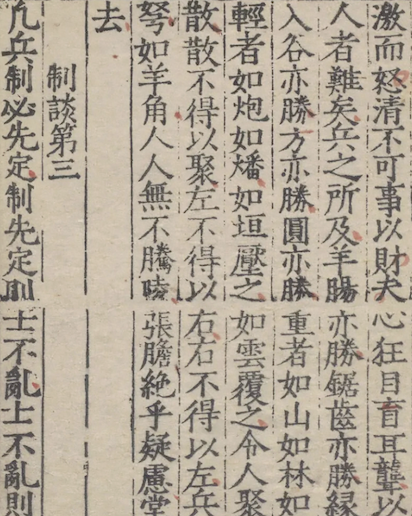 激而怒清不可事以財夫心狂目盲耳聾以
人者難矣兵之所及羊腸亦勝鋸齒亦勝緣
入谷亦勝方亦勝圓亦勝重者如山如林如
輕者如炮如燔如垣壓之如雲覆之令人聚
散散不得以聚左不得以右右不得以左兵
弩如羊角人人無不騰陵張膽絶乎疑慮堂
去
制談第三
凢兵制必先定制先定則士不亂士不亂則